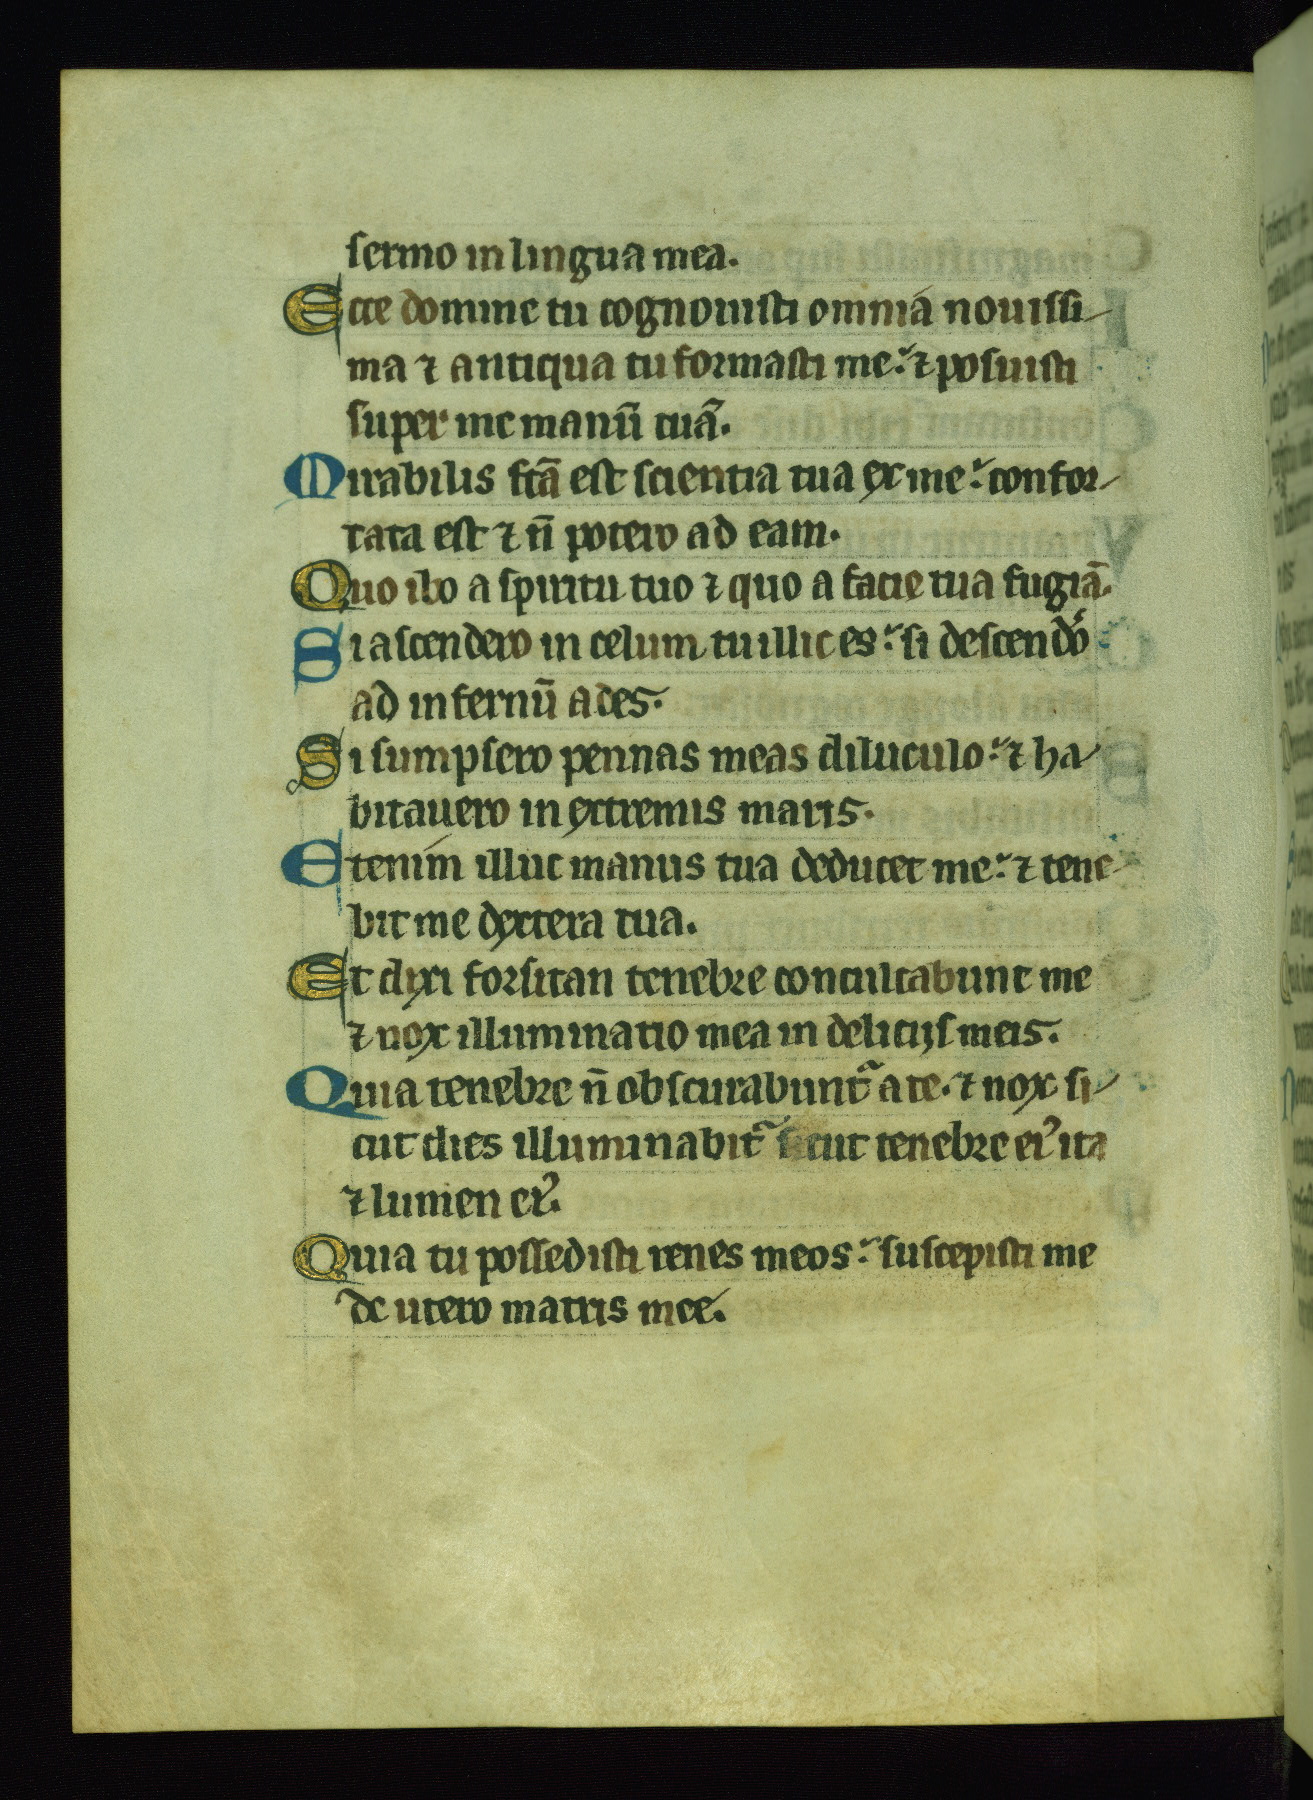 sermo in lingua mea.
Ecce domine tu cognouisti omnia nouissi-
ma ⁊ antiqua tu formasti me: ⁊ posuisti
super me manū tuā.
Mirabilis fcā est scientia tua ex me: confor-
tata est ⁊ n̄ potero ad eam.
Quo ibo a spiritu tuo ⁊ quo a facie tua fugiā.
Si ascendero in celum tu illic es: si descendo᷒
ad infernū ades.
Si sumpsero pennas meas diluculo: ⁊ ha-
bitauero in extremis maris.
Etenim illuc manus tua deducet me: ⁊ tene-
bit me dextera tua.
Et dixi forsitan tenebre conculcabunt me
⁊ nox illuminatio mea in delicijs meis.
Quia tenebre n̄ obscurabunt᷑ a te. ⁊ nox si-
cut dies illuminabit᷑ sicut tenebre ei᷒ ita
⁊ lumen ei᷒.
Quia tu possedisti renes meos: suscepisti me
de utero matris mee.